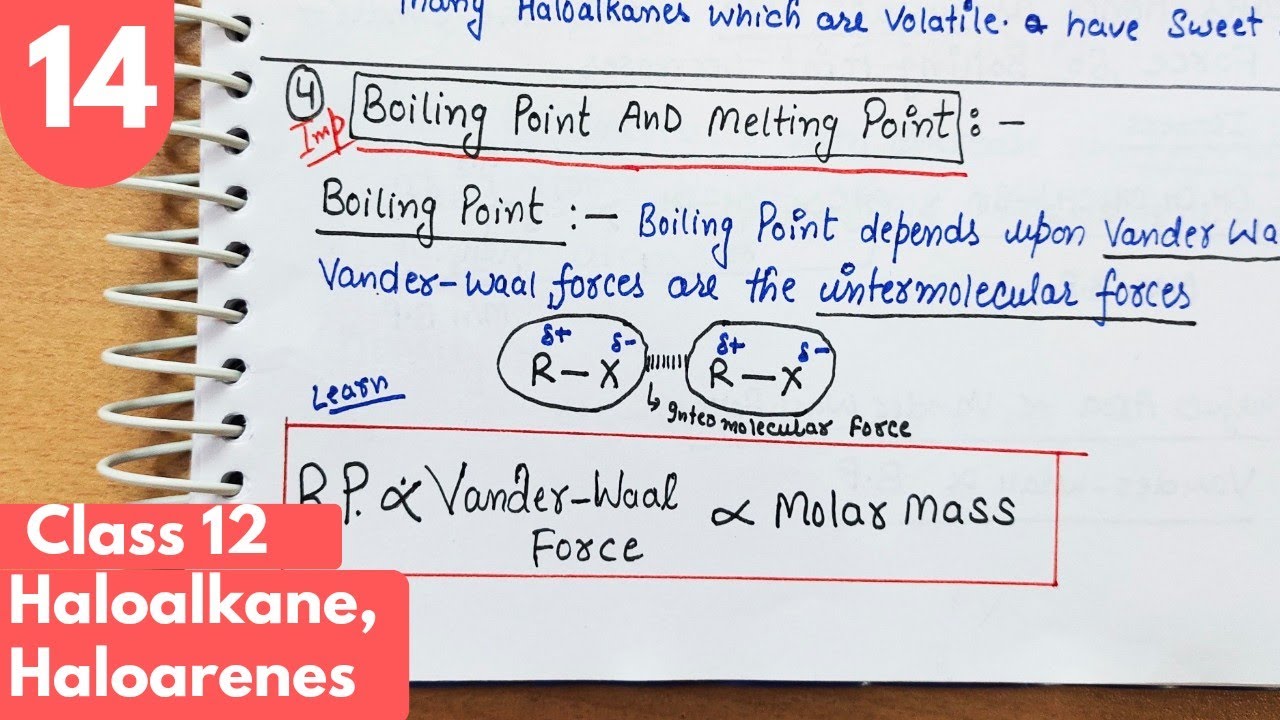 14
many Haloalkanes which are volatile. & have Sweet
④ Boiling Point AND Melting Point :-
Imp
Boiling Point :- Boiling Point depends upon Vander Wa
Vander-Waal, forces are the intermolecular forces
δ+ δ- δ+ δ-
R-X R-X
Learn
↳ Intermolecular Force
B.P. ∝ Vander-Waal ∝ Molar Mass
Force
Class 12
Haloalkane,
Haloarenes